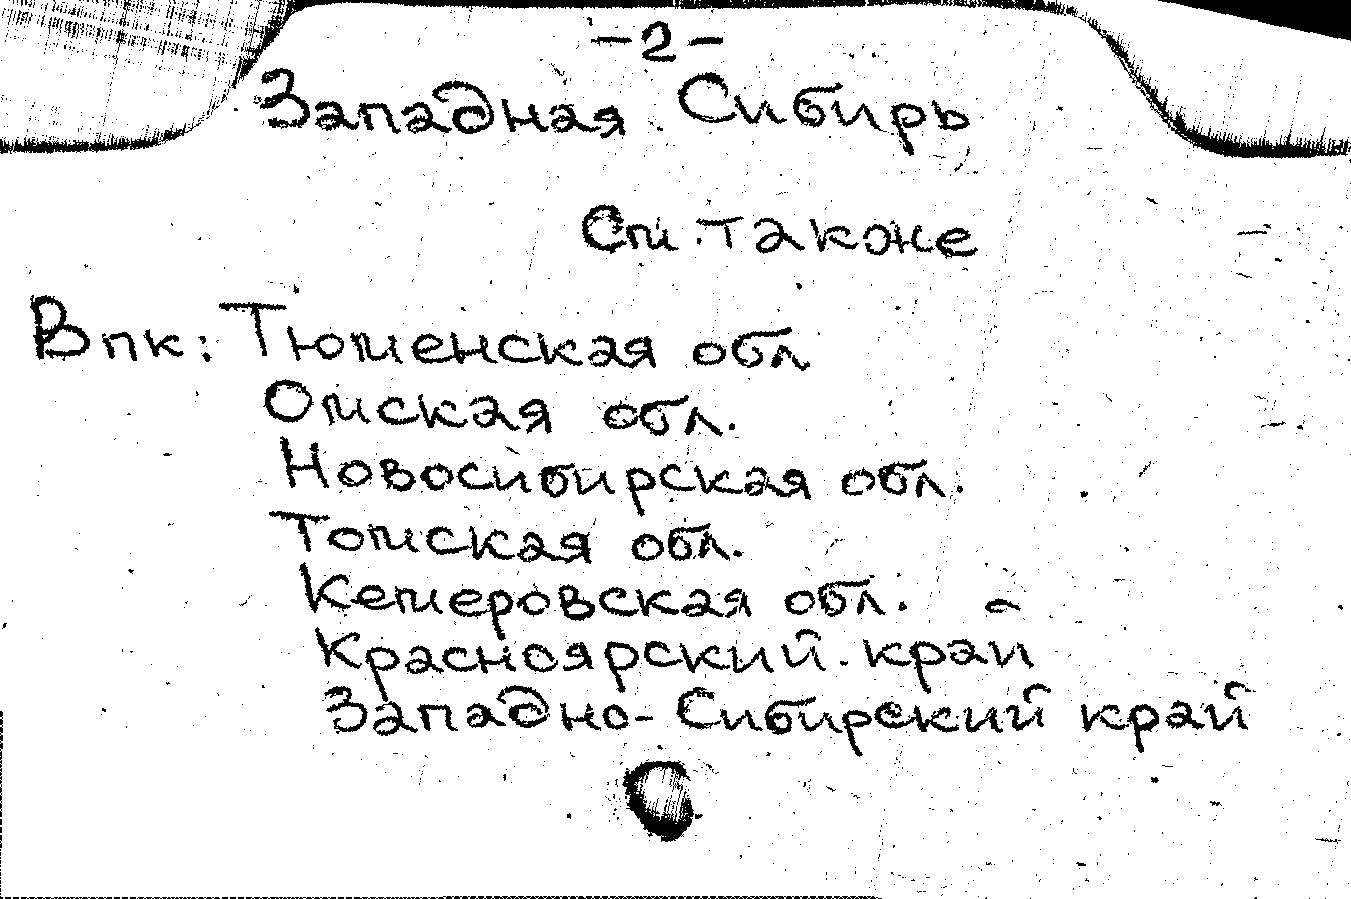 -2-
Западная Сибирь
См. также
Впк: Тюменская обл
Омская обл.
Новосибирская обл.
Томская обл.
Кемеровская обл.
Красноярский край
Западно-Сибирский край